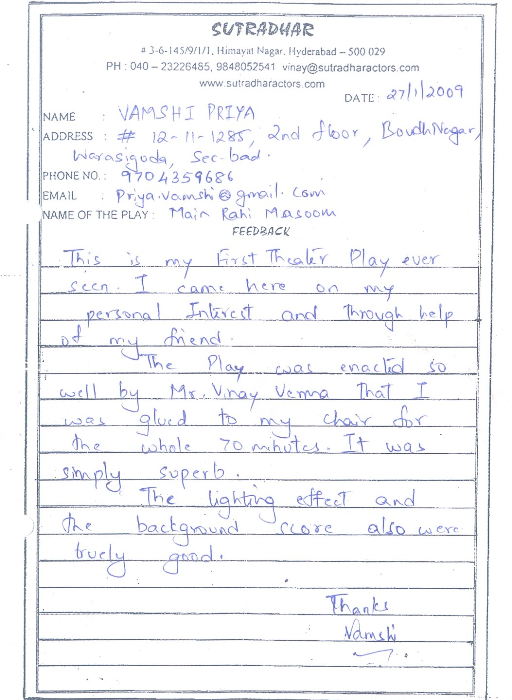 SUTRADHAR
# 3-6-145/9/1/1, Himayat Nagar, Hyderabad – 500 029
PH : 040 – 23226485, 9848052541 vinay@sutradharactors.com
www.sutradharactors.com
DATE : 27/1/2009
NAME : VAMSHI PRIYA
ADDRESS : # 12-11-1285, 2nd floor, BoudhNagar,
Warasiguda, Sec-bad.
PHONE NO. : 9704359686
EMAIL : Priya.vamshi@gmail.com
NAME OF THE PLAY : Main Rahi Masoom
FEEDBACK
This is my First Theater Play ever
seen. I came here on my
personal Interest and through help
of my friend.
The Play was enacted so
well by Mr. Vinay Varma That I
was glued to my chair for
the whole 70 minutes. It was
simply superb.
The lighting effect and
the background score also were
truely good.
Thanks
Vamshi